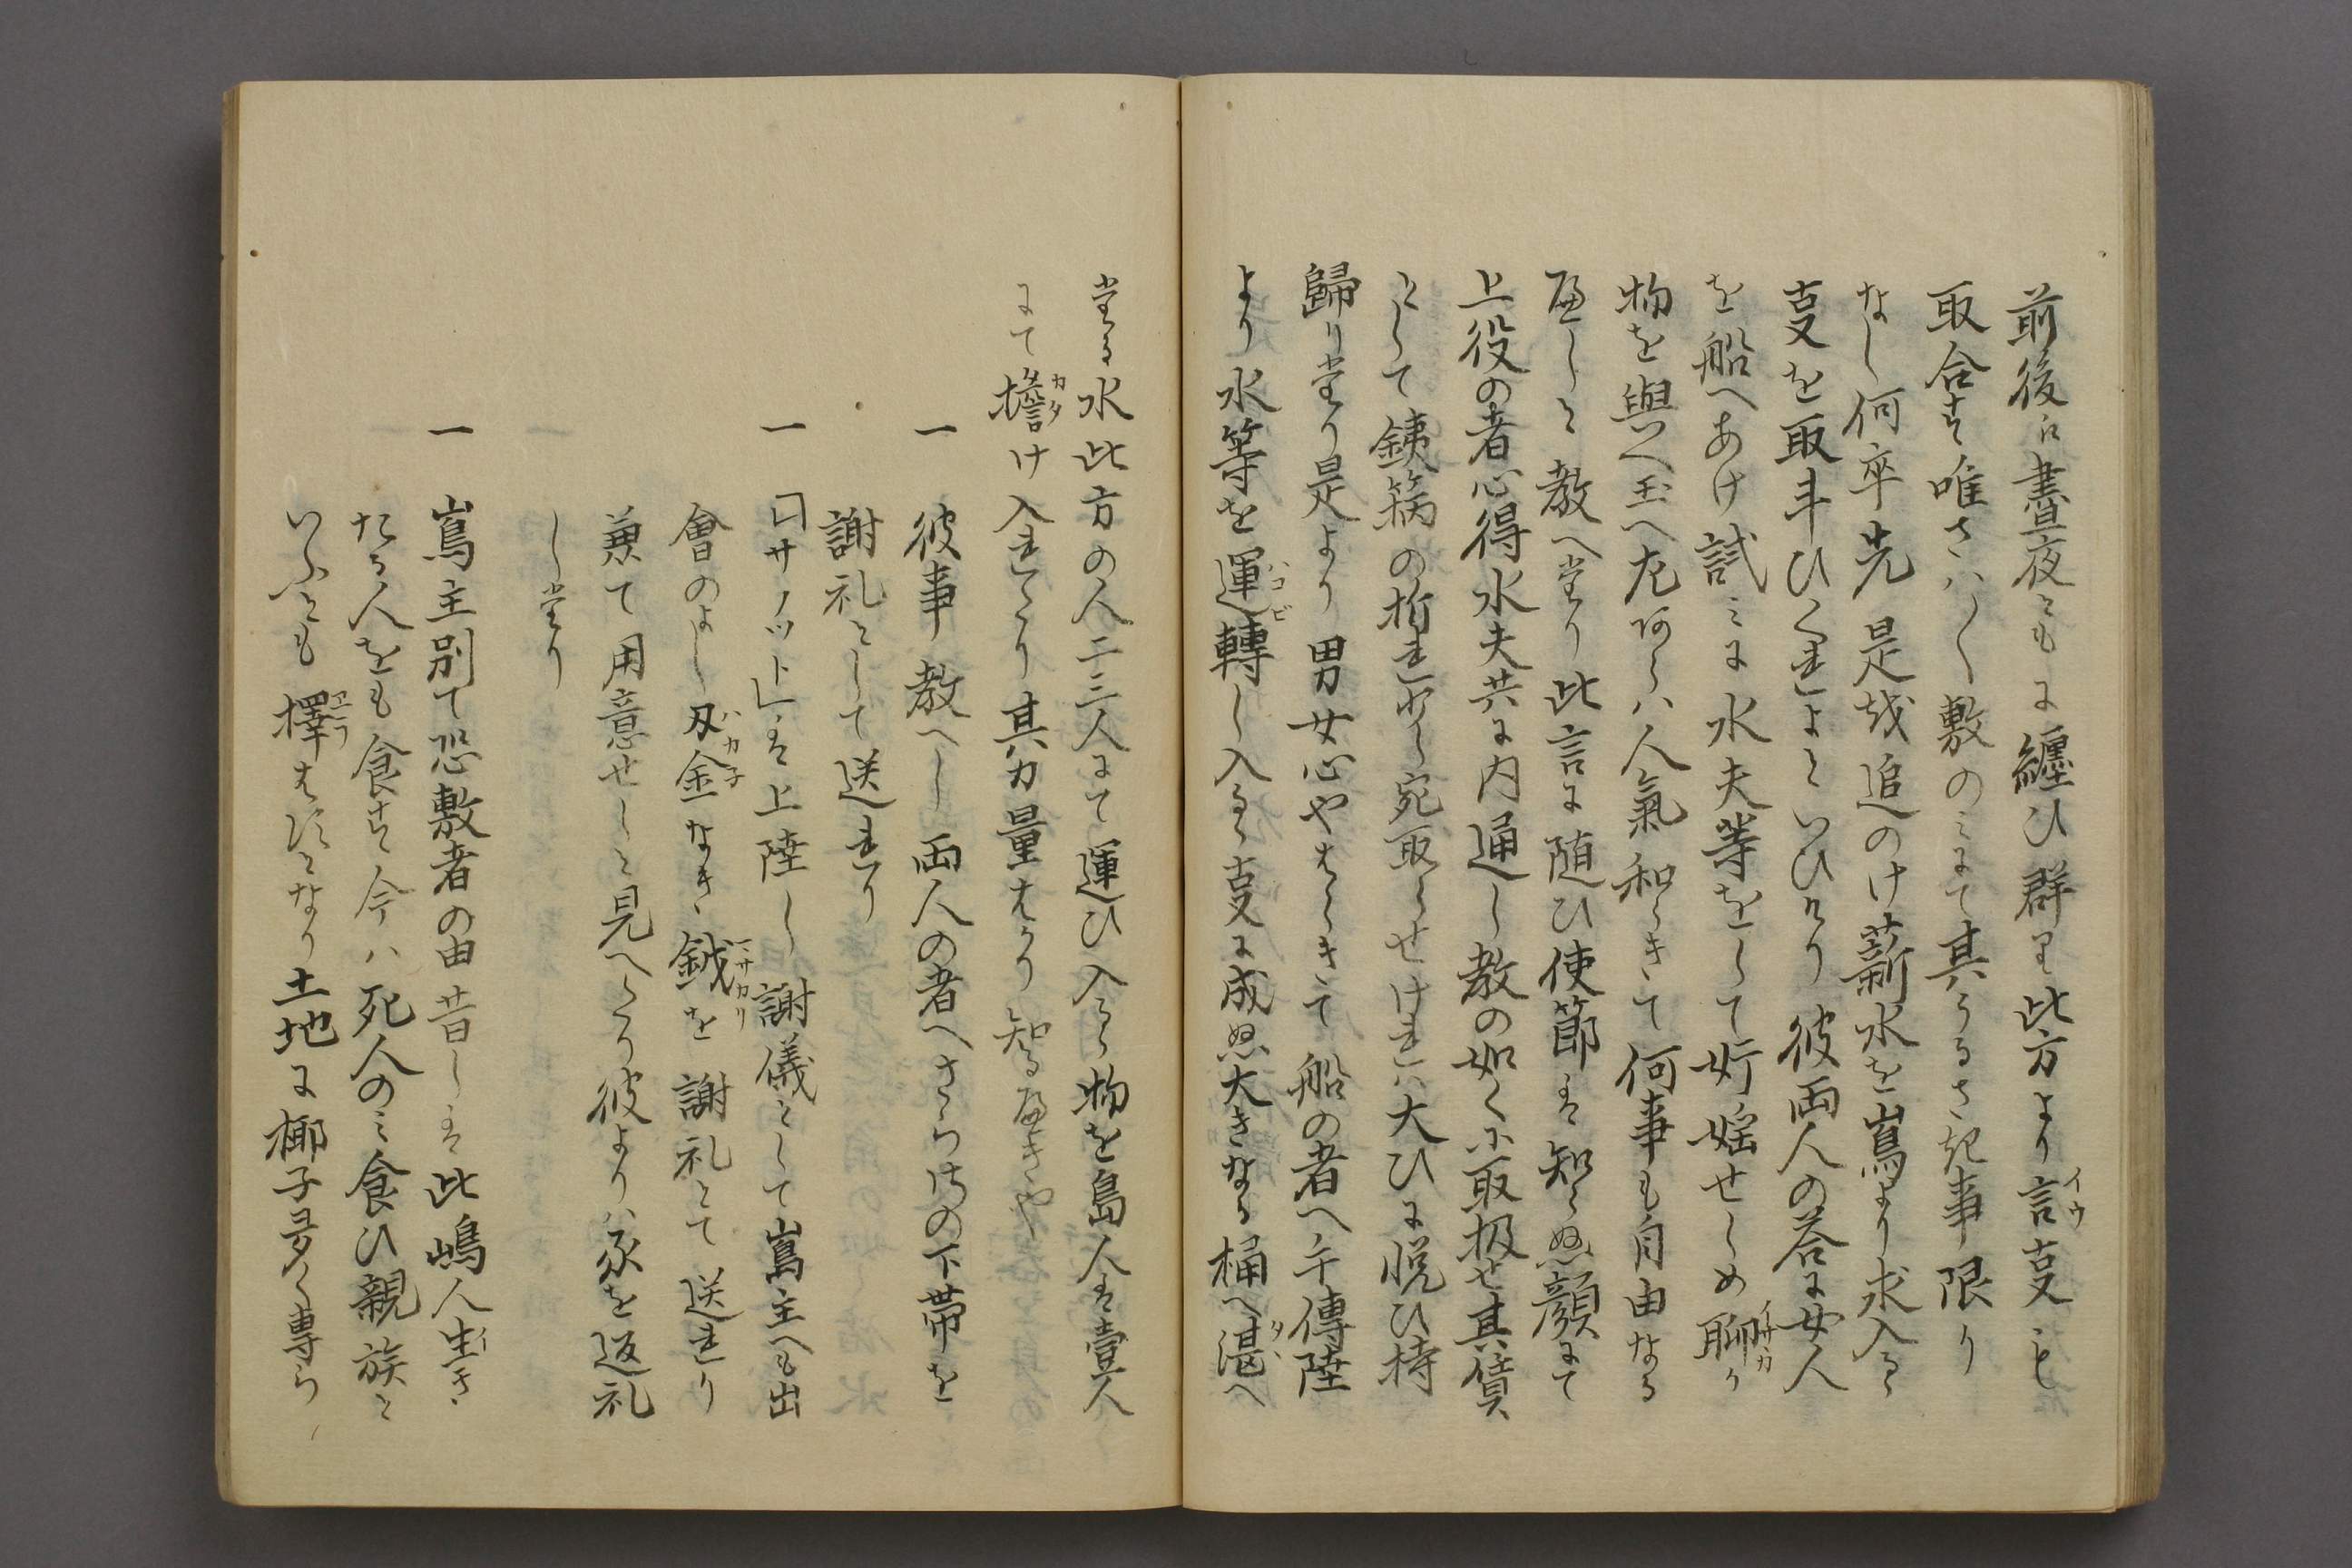 前後に晝夜ともに纏ひ群て此方より言事も
取合す唯さハ〳〵敷のミにて其うるさき事限り
なし何卒先是を追のけ薪水を嶌より求入る
事を取斗ひくれよといひけり彼両人の答に女人
を船へあけ試ミに水夫等をして奸婬せしめ聊り
物を與へ玉へ左あらハ人氣和らきて何事も自由なる
へしと教へたり此言に随ひ使節は知らぬ顔にて
上役の者心得水夫共に内通し教の如くに取扱せ其賃
として銕箍の折れ少し宛取らせけれハ大ひに悦ひ持
歸りたり是より男女心やはらきて船の者へ手傳陸
より水等を運轉し入るゝ事に成ぬ大きなる桶へ湛へ
たる水此方の人二三人にて運ひ入るゝ物を島人は壹人
にて擔け入れたり其力量はかり知るへきや
一 彼事教へし両人の者へさらさの下帯を
謝礼として送れり
一 「コサノット」は上陸し謝儀として嶌主へも出
會のよし刄金なき鉞を謝礼とて送れり
兼て用意せしと見へたり彼よりハ豕を返礼
したり
一 嶌主別て恐敷者の由昔しは此嶋人生き
たる人をも食す今ハ死人のミ食ひ親族と
いふとも擇はすとなり土地に椰子多く専ら